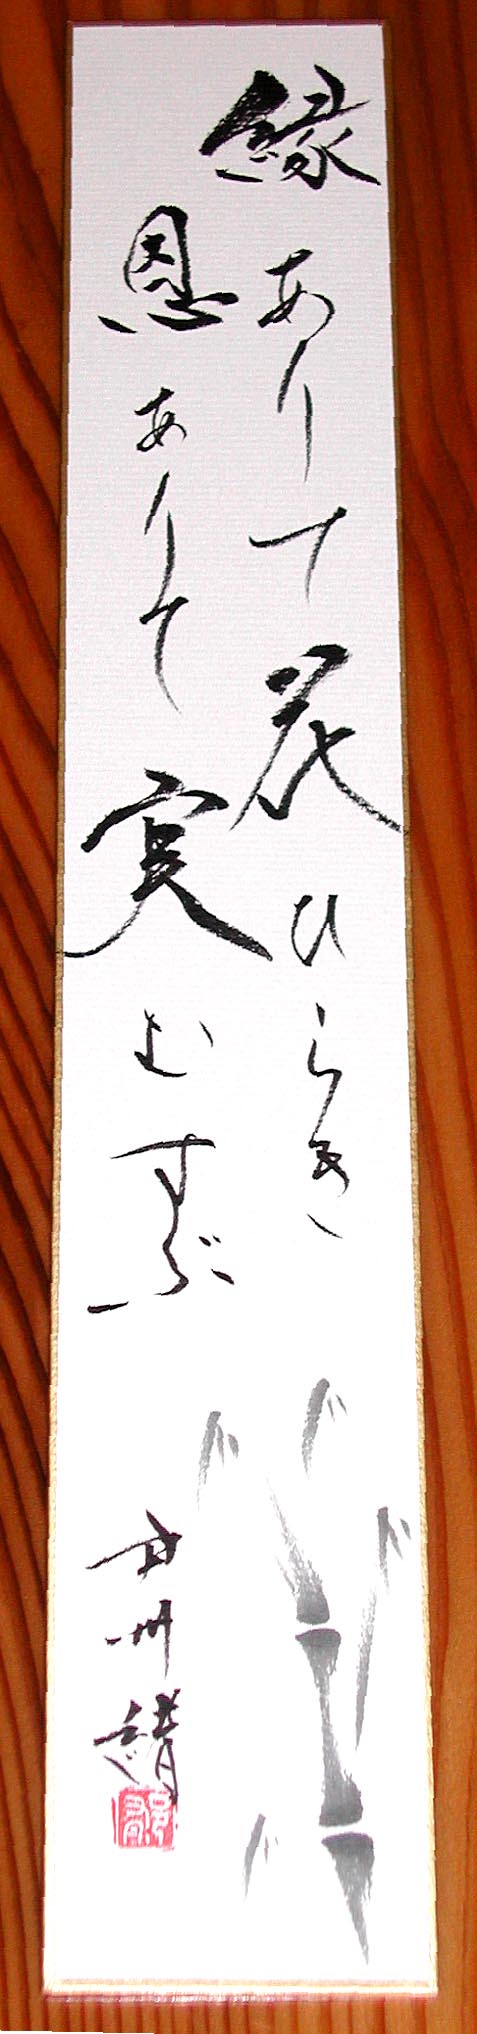 縁ありて花ひらき
恩ありて実むすぶ